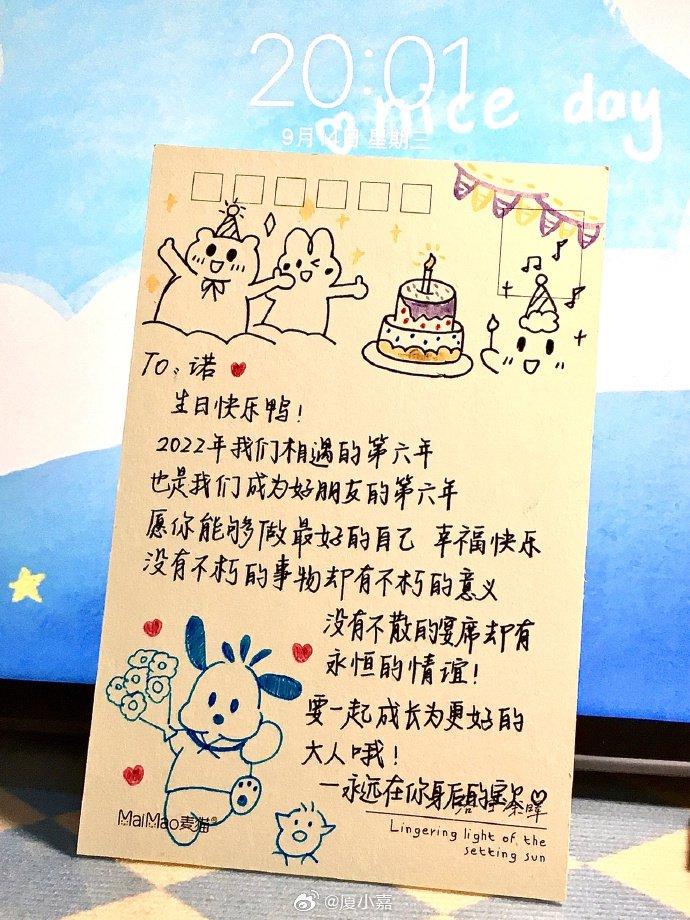 20:01
nice day
9月14日 星期三
TO：诺
生日快乐鸭！
2022年我们相遇的第六年
也是我们成为好朋友的第六年
愿你能够做最好的自己 幸福快乐
没有不朽的事物却有不朽的意义
没有不散的宴席却有
永恒的情谊！
要一起成长为更好的
大人哦！
—永远在你身后的
余晖
MaiMao麦猫®
Lingering light of the
setting sun
@厦小嘉